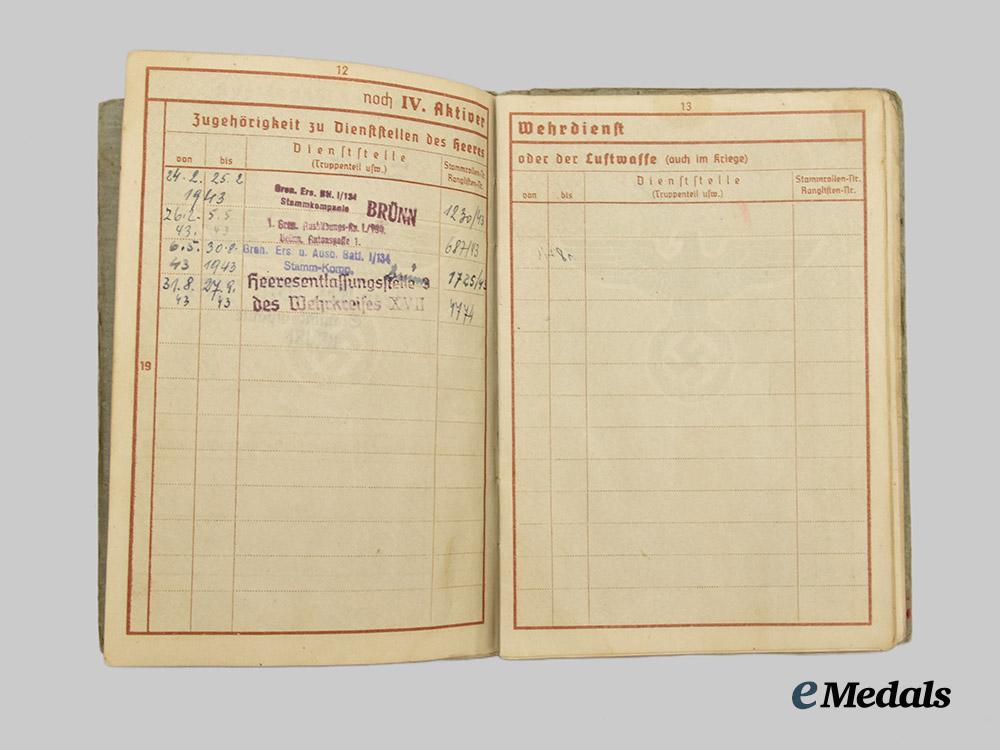 12
noch IV. Aktiver
Zugehörigkeit zu Dienststellen des Heeres
von bis Dienststelle (Truppenteil usw.) Stammrollen-Nr. Ranglisten-Nr.
24.2. 25.2
1943
Gren. Ers. Btl. I/134
Stammkompanie BRÜNN
1230/43
26.2. 5.5.
43. 43
1. Gren. Ausbildungs-Kp.
687/43
6.5. 30.8.
43 1943
Gren. Ers u. Ausb. Batl. I/134
Stamm-Komp.
1725/43
31.8. 27.9.
43 43
Heeresentlassungsstelle
des Wehrkreises XVII
4774
19
13
Wehrdienst
oder der Luftwaffe (auch im Kriege)
von bis Dienststelle (Truppenteil usw.) Stammrollen-Nr. Ranglisten-Nr.
eMedals